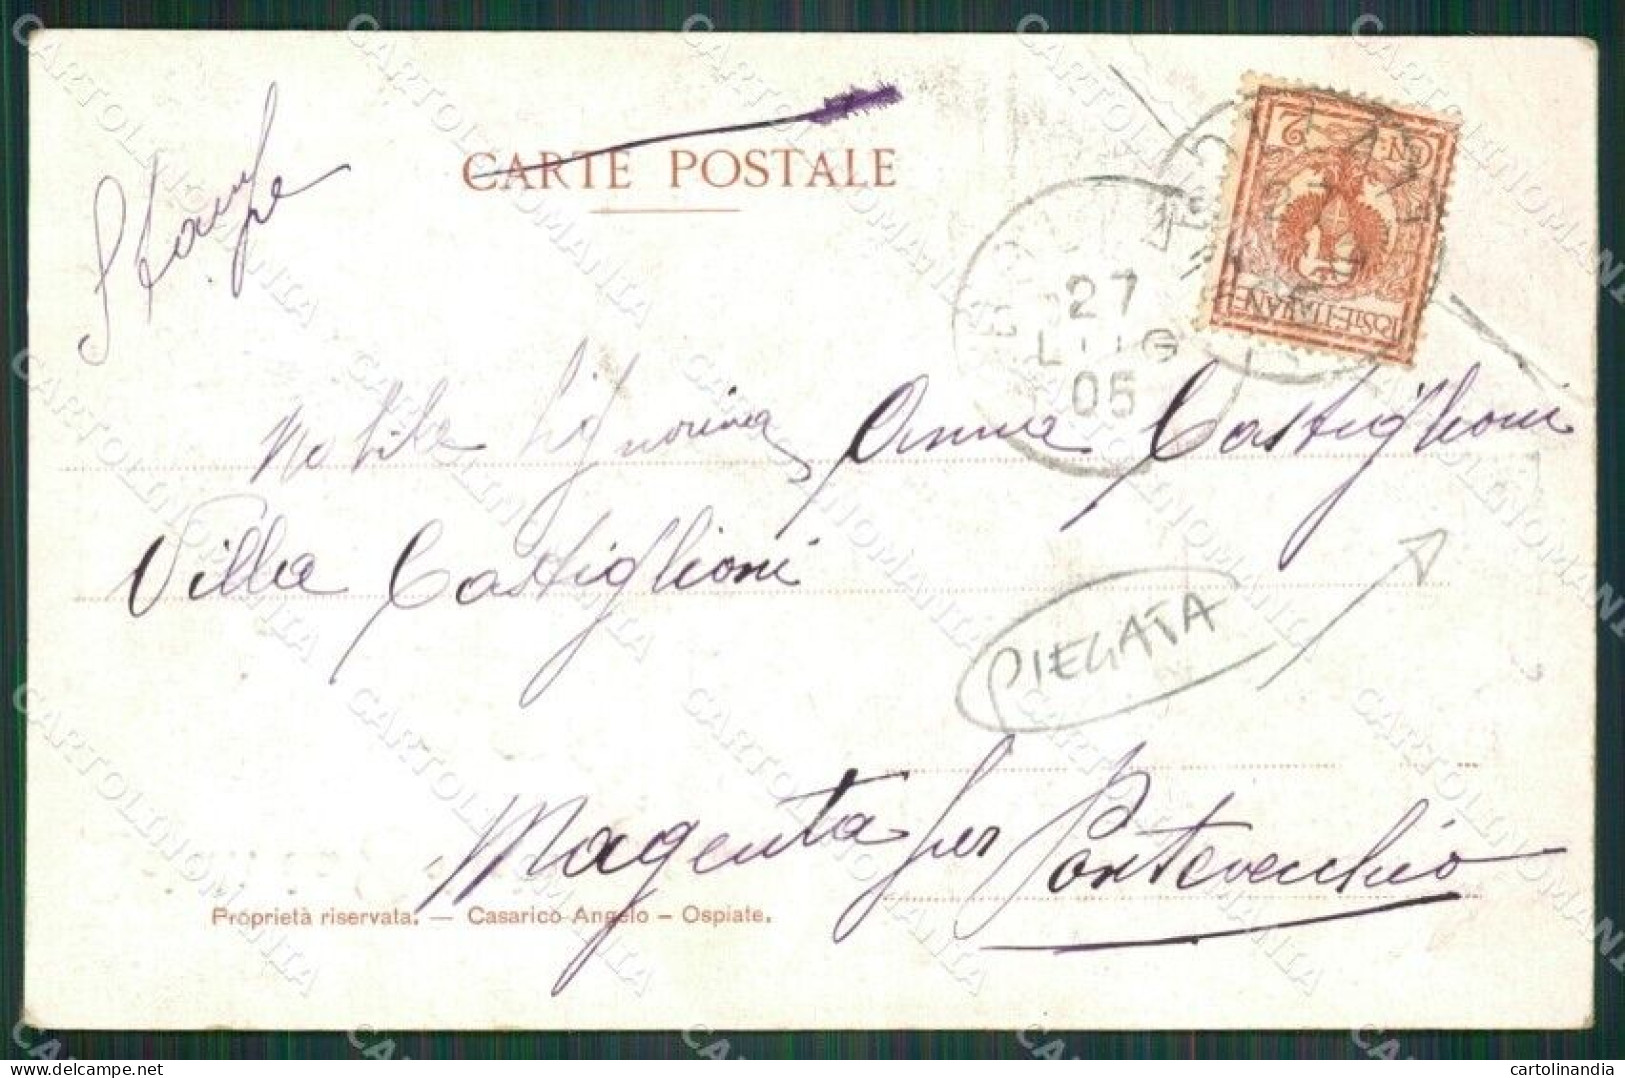 CARTE POSTALE
Stampe
CEN. 2
POSTE ITALIANE
27
LUG
05
27
Nobile Signorina Anna Castiglioni
Villa Castiglioni
PIEGATA
Magenta per Pontevecchio
Proprietà riservata. — Casarico Angelo – Ospiate.
CARTOLINOMANIA
cartolinandia